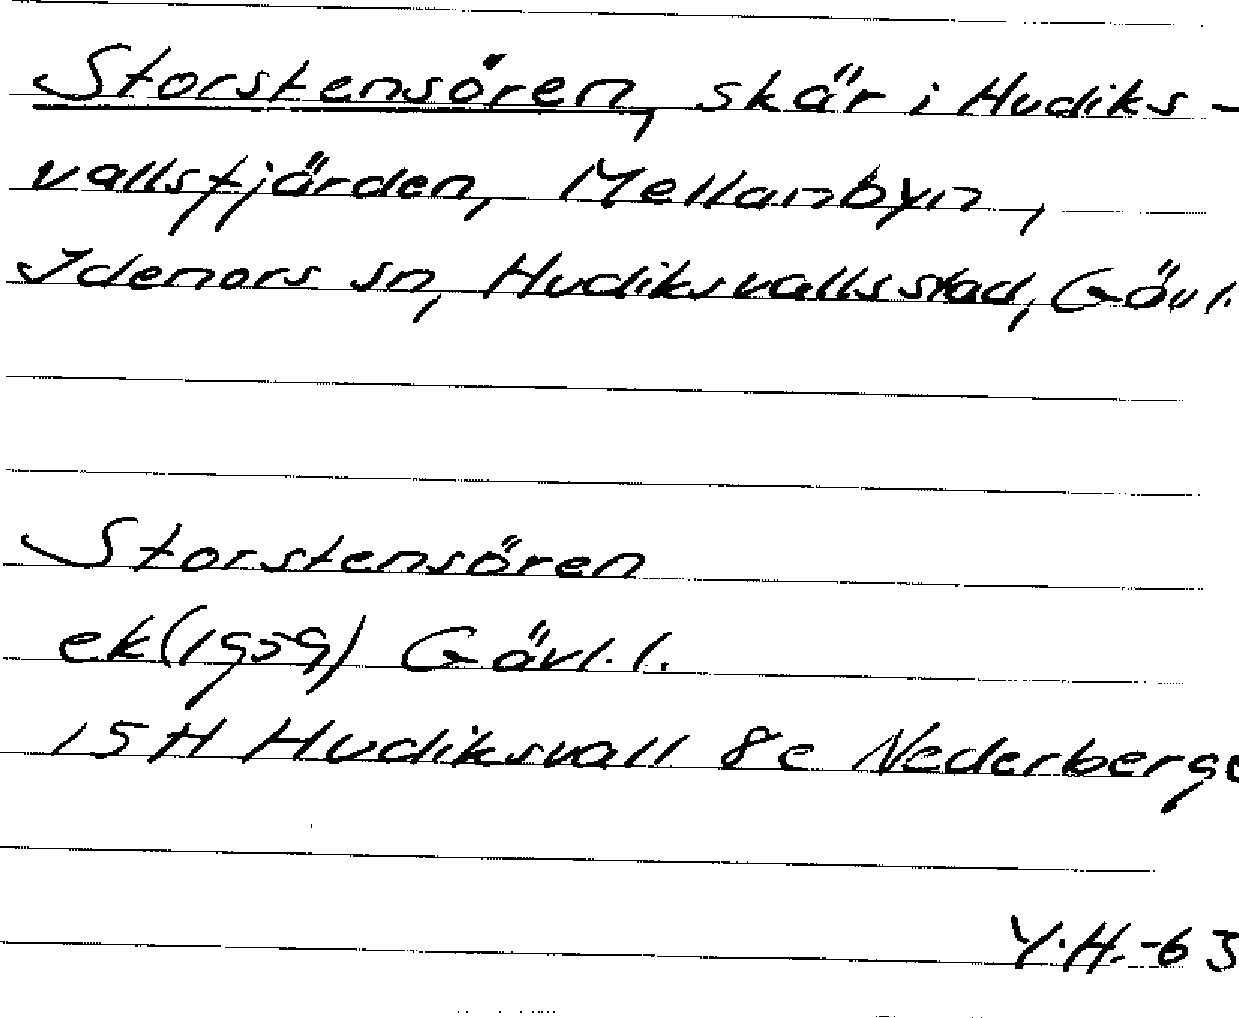 Storstensören, skär i Hudiks-
vallsfjärden, Mellanbyn,
Idenors sn, Hudiksvalls stad, Gävl.
Storstensören
ek(1959) Gävl. l.
15H Hudiksvall 8e Nederberge
Y.H.-63